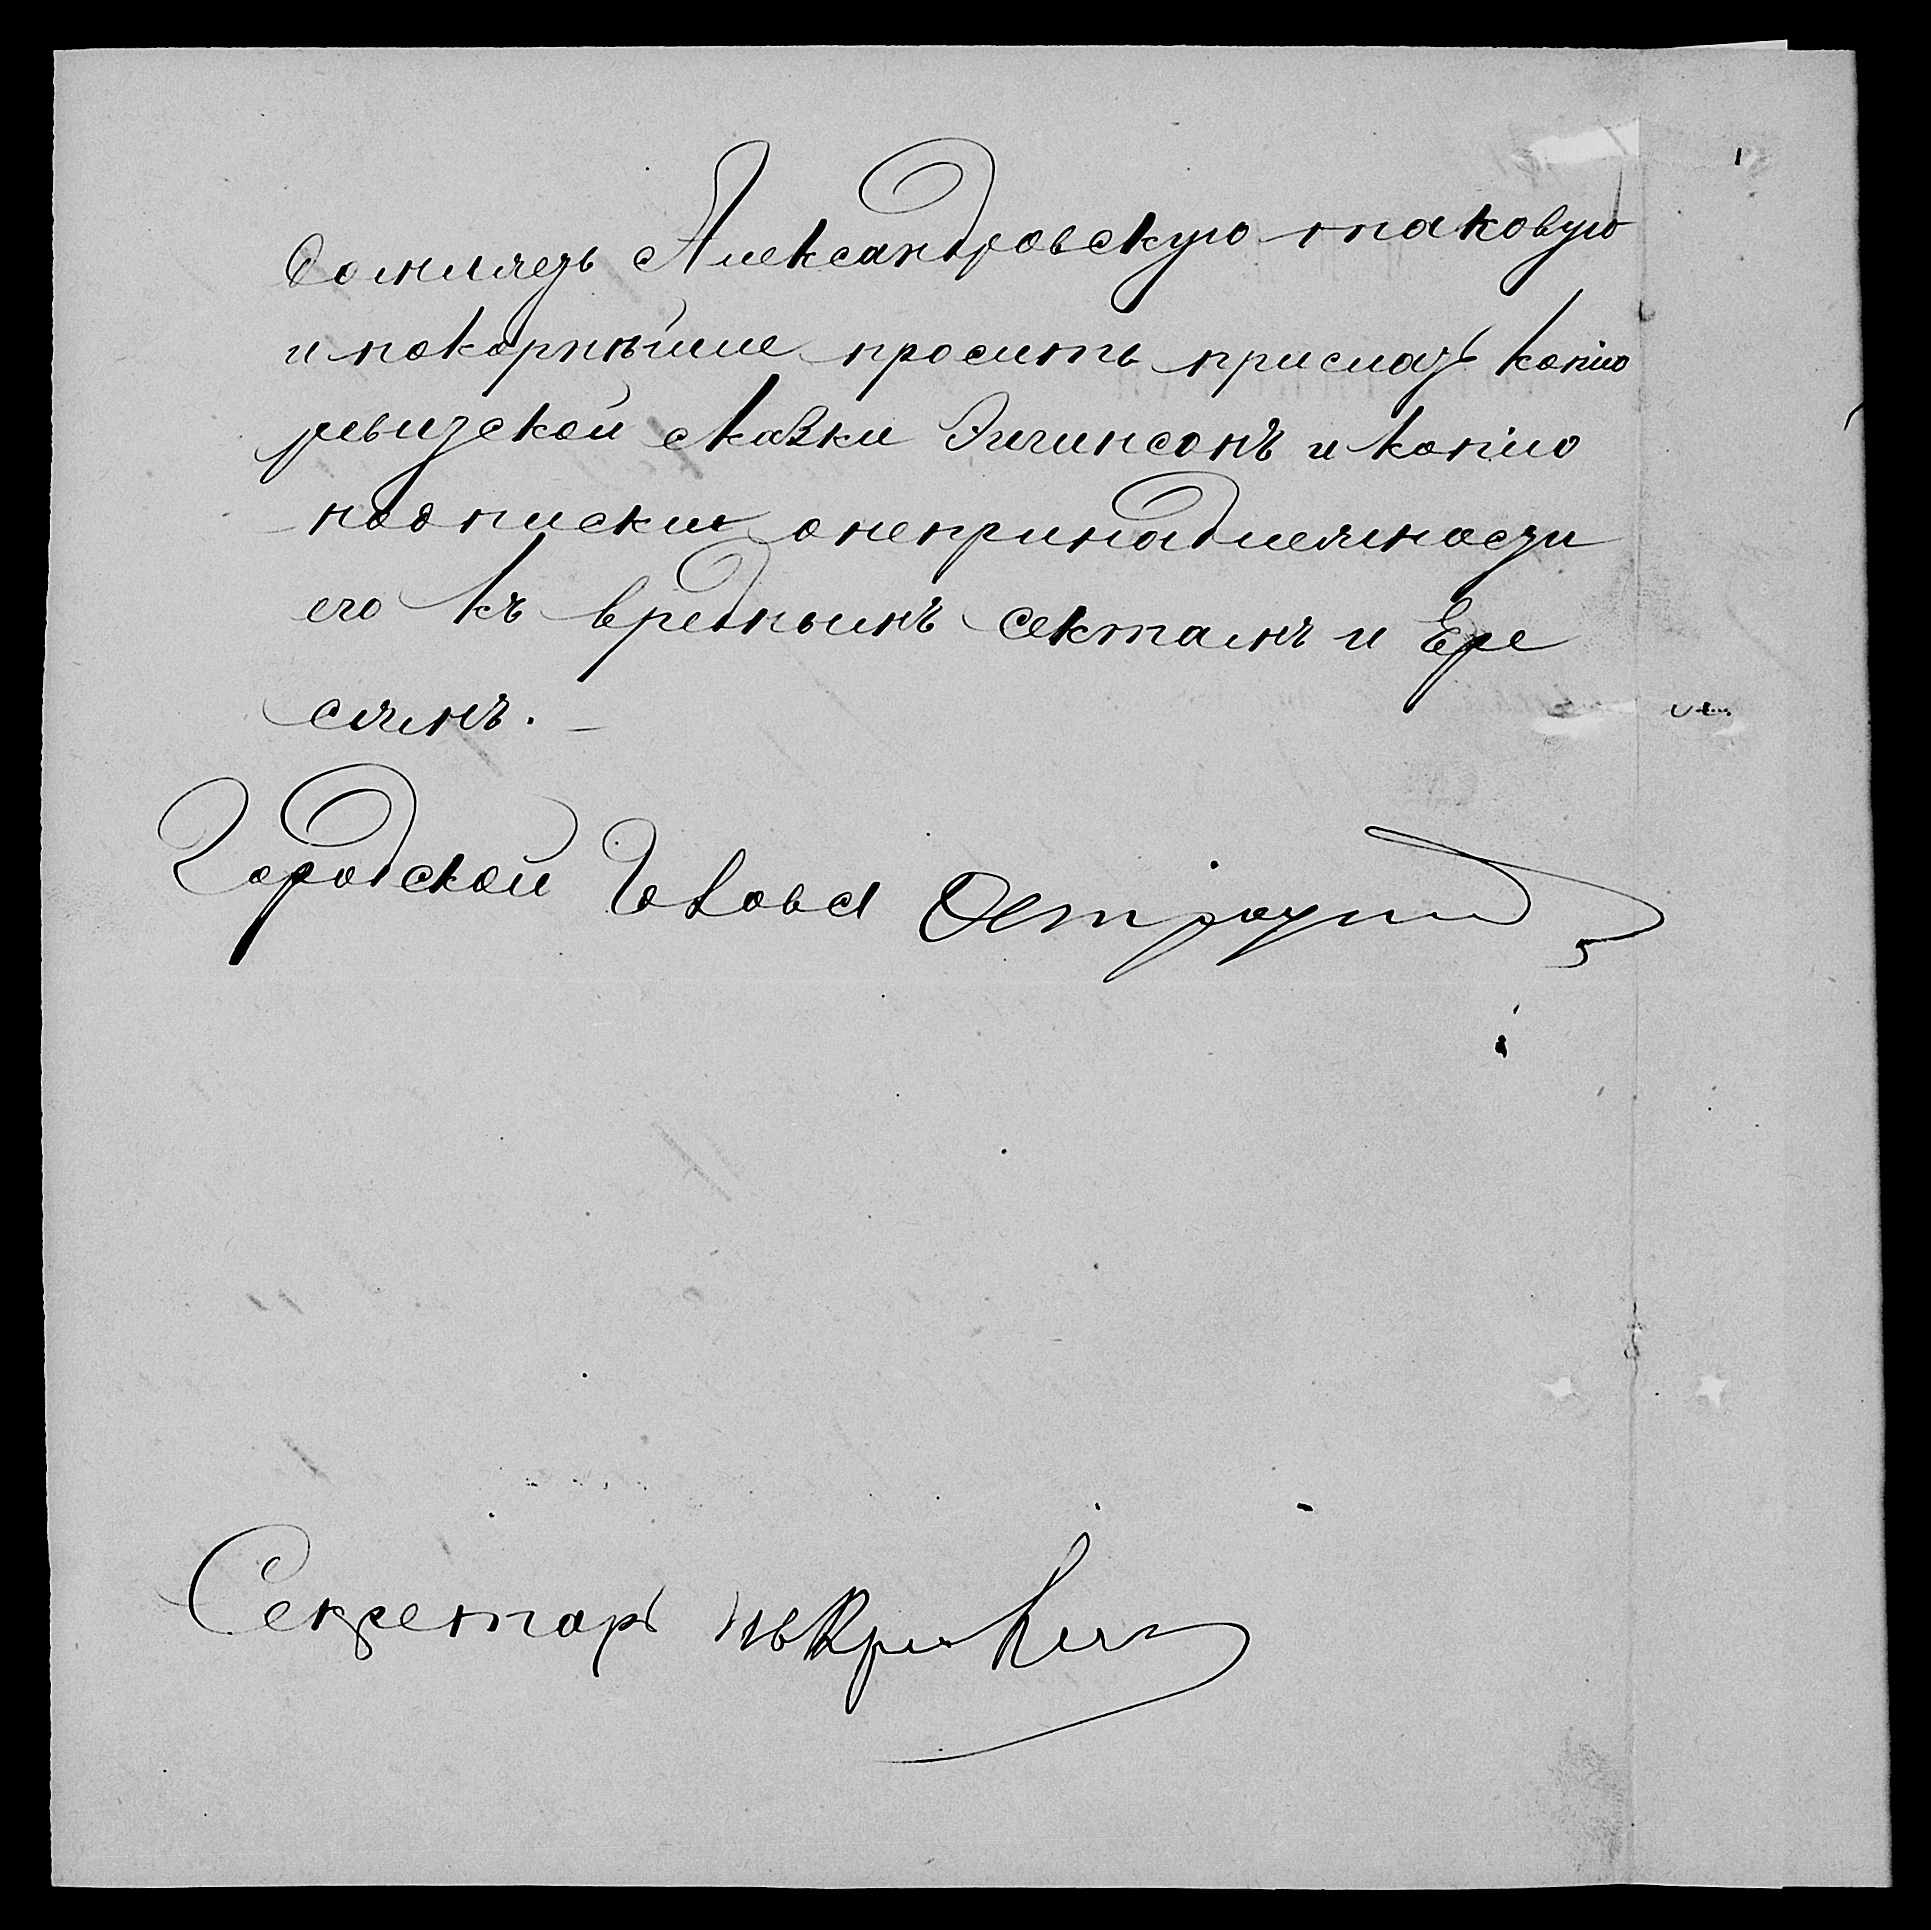 домлять Александровскую таковую
и покорнѣйше просить прислать копію
ревизской сказки Эичинсонъ и копію
подписки о непринадлежности
его къ вреднымъ сектамъ и Ере
сямъ. —
Городской Голова
Секретарь